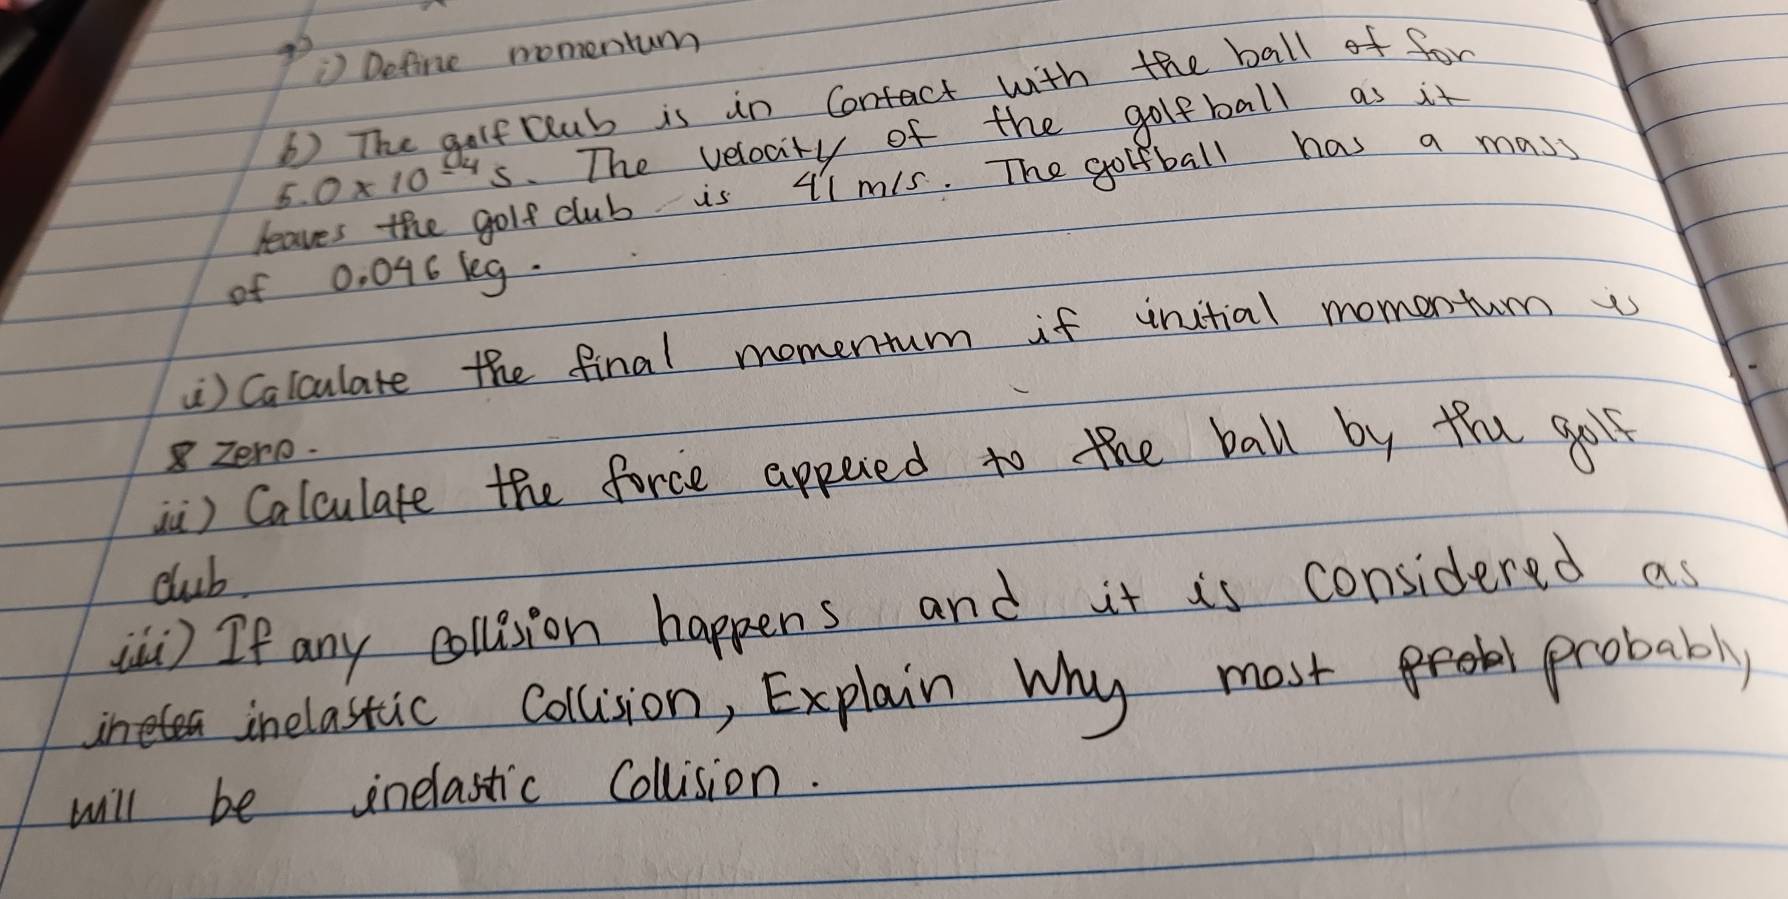 i) Define momentum
b) The golf club is in contact with the ball of for
5.0 x 10⁻⁴ s. The velocity of the golf ball as it
leaves the golf club is 41 m/s. The golfball has a mass
of 0.046 kg.
i) Calculate the final momentum if initial momentum is
zero.
ii) Calculate the force appeied to the ball by the golf
club.
iii) If any collision happens and it is considered as
inelastic collision, Explain Why most probably
will be inelastic Collision.